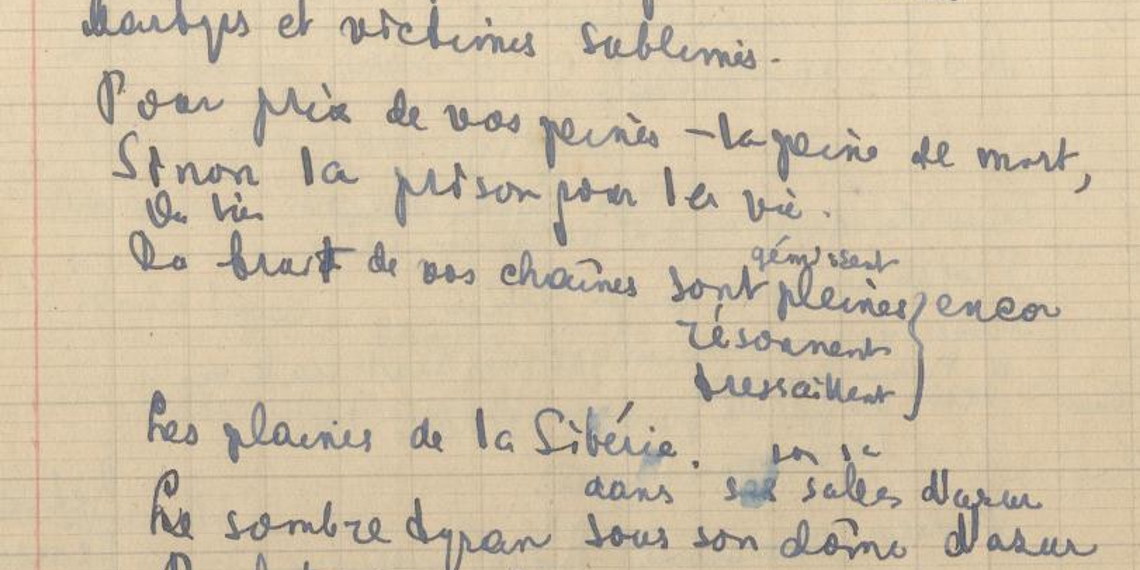 Martyrs et victimes sublimes.
Pour prix de vos peines – la peine de mort,
Sinon la prison pour la vie.
Du bruit de vos chaînes sont pleines encor
gémissent
résonnent
tressaillent
Les plaines de la Sibérie.
son sa
dans ses salles d'azur
Le sombre tyran sous son dôme d'azur